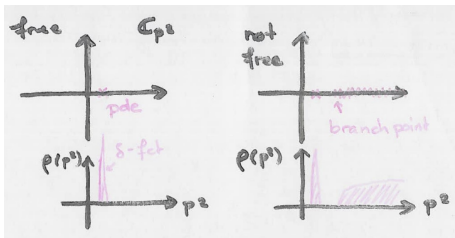 free
ℂp²
pole
ρ(p²)
δ-fct
p²
not
free
branch point
ρ(p²)
p²